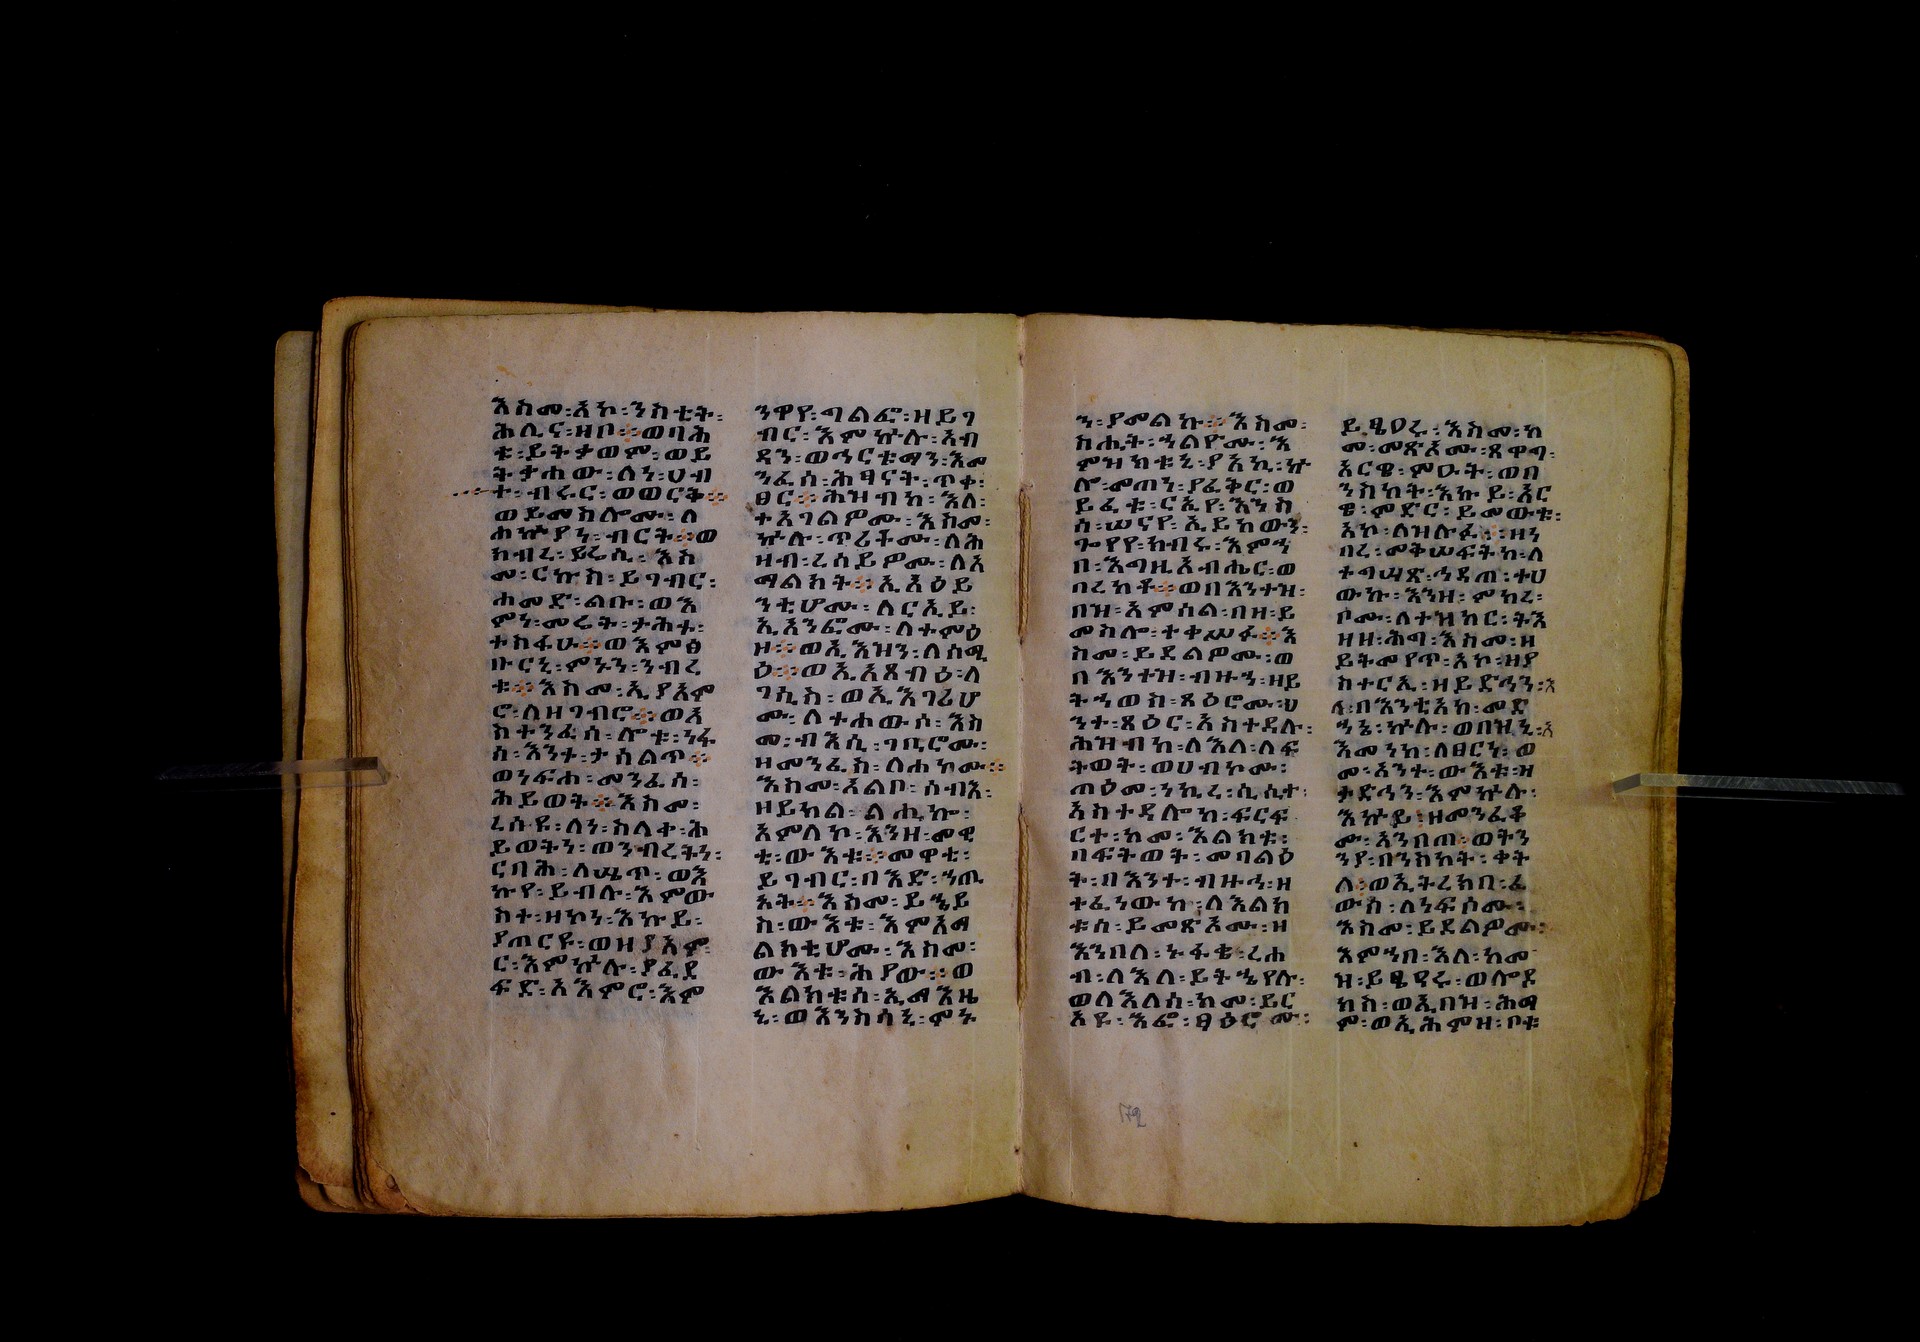 እስመ፡አኮ፡ንስቲት፡
ሕሊና፡ዘቦ፨ወባሕ
ቱ፡ይትቃወም፡ወይ
ትቃሐው፡ለነ፡ሀብ
ተ፡ብሩር፡ወወርቅ፨
ወይመስሎሙ፡ለ
ሐዅያነ፡ብርት፨ወ
ክብረ፡ይሬሲ፡እስ
መ፡ርኩስ፡ይገብር፡
ሐመድ፡ልቡ፡ወእ
ምነ፡መሬት፡ታሕተ፡
ተስፋሁ፨ወእምፅ
ቡርኒ፡ምኑን፡ንብረ
ቱ፨እስመ፡ኢያእም
ሮ፡ለዘገብሮ፨ወአ
ስተንፈሰ፡ሎቱ፡ነፋ
ሰ፡እንተ፡ታሰልጥ፨
ወነፍሐ፡መንፈሰ፡
ሕይወት፨እስመ፡
ረሰዩ፡ለነ፡ስላቀ፡ሕ
ይወትነ፡ወንብረትነ፡
ርባሕ፡ለሤጥ፡ወእ
ኩየ፡ይብሉ፡እምው
ስተ፡ዘኮነ፡እኩይ፡
ያጠርዩ፡ወዘያአም
ር፡እምኵሉ፡ያፈደ
ፍድ፡አእምሮ፡እም
ንዋየ፡ግልፎ፡ዘይገ
ብር፡እምኵሉ፡አብ
ዳን፡ወኅርቱማን፡እመ
ንፈሰ፡ሕፃናት፡ጥቀ፡
ፀር፨ሕዝብከ፡እለ፡
ተአገልዎሙ፡እስመ፡
ኵሉ፡ጥሪቶሙ፡ለሕ
ዘብ፡ረሰይዎሙ፡ለአ
ማልክት፨ኢአዕይ
ንቲሆሙ፡ለርኢይ፡
ኢአንፎሙ፡ለተምዕ
ዞ፨ወኢእዝን፡ለሰሚ
ዕ፨ወኢአጻብዕ፡ለ
ገሲስ፡ወኢእገሪሆ
ሙ፡ለተሐውሰ፡እስ
መ፡ብእሲ፡ገቢሮሙ፡
ዘመንፈስ፡ለሐከሙ፨
እስመ፡አልቦ፡ሰብእ፡
ዘይክል፡ልሒኩ፡
አምላኮ፡እንዘ፡መዊ
ቲ፡ውእቱ፨መዋቲ፡
ይገብር፡በእድ፡ኀጢ
አት፨እስመ፡ይኄይ
ስ፡ውእቱ፡እምአማ
ልክቲሆሙ፡እስመ፡
ውእቱ፡ሕያው፨ወ
እልክቱሰ፡ኢማእዜ
ኒ፡ወእንስሳኒ፡ምኑ
ን፡ያመልኩ፨እስመ፡
ስሒት፡ኅልዮሙ፡እ
ምዝክቱኒ፡ያአኪ፡ኵ
ሎ፡መጠነ፡ያፈቅር፡ወ
ይፈቱ፡ርእየ፡እንስ
ሳ፡ሠናየ፡ኢይከውን፡
ጐየየ፡ክብሩ፡እምኀ
በ፡እግዚአብሔር፡ወ
በረከቶ፨ወበእንተዝ፡
በዝ፡አምሳል፡በዘ፡ይ
መስሎ፡ተቀሥፋ፨እ
ስመ፡ይደልዎሙ፡ወ
በእንተዝ፡ብዙኅ፡ዘይ
ትኀወስ፡ጻዕሮሙ፡ህ
ንተ፡ጻዕር፡አስተዳሉ፡
ሕዝብከ፡ለእለ፡ለፍ
ትወት፡ወሀብኮሙ፡
ጠዕመ፡ነኪረ፡ሲሲተ፡
አስተዳሎከ፡ፍርፍ
ርተ፡ከመ፡እልክቱ፡
በፍትወት፡መባልዕ
ት፡በእንተ፡ብዙኅ፡ዘ
ተፈነውከ፡ለእልክ
ቱሰ፡ይመጽኦሙ፡ዘ
እንበለ፡ኑፋቄ፡ረሐ
ብ፡ለእለ፡ይትኄየሉ፡
ወለእለሰ፡ከመ፡ይር
አዩ፡እፎ፡ፃዕሮሙ፡
ይፄዐሩ፡እስመ፡ከ
መ፡መጽኦሙ፡ጸዋግ፡
አርዌ፡ምዐት፡ወበ
ንስከት፡እኩይ፡አር
ዌ፡ምድር፡ይመውቱ፡
አኮ፡ለዝሉፉ፨ዘነ
በረ፡መቅሠፍትከ፡ለ
ተግሣጽ፡ኅዳጠ፡ተሀ
ውኩ፡እንዘ፡ምክረ፡
ቦሙ፡ለተዝክር፡ትእ
ዘዘ፡ሕግ፡እስመ፡ዘ
ይትመየጥ፡አኮ፡ዘያ
ስተርኢ፡ዘይድኅን፡አ
ላ፡በእንቲአከ፡መድ
ኀኔ፡ኵሉ፡ወበዝኒ፡አ
እመንከ፡ለፀርነ፡ወ
መ፡አንተ፡ውእቱ፡ዘ
ታድኅን፡እምኵሉ፡
እኵይ፡ዘመንፈቆ
ሙ፡አንበጠ፡ወትን
ንያ፡በንስከት፡ቀት
ለ፡ወኢትረክበ፡ፈ
ውስ፡ለነፍሶሙ፡
እስመ፡ይደልዎሙ፡
እምኀበ፡እለ፡ከመ
ዝ፡ይፄዓሩ፡ወሎደ
ከሰ፡ወኢበዝ፡ሕማ
ም፡ወኢሕምዘ፡ቦቱ
172